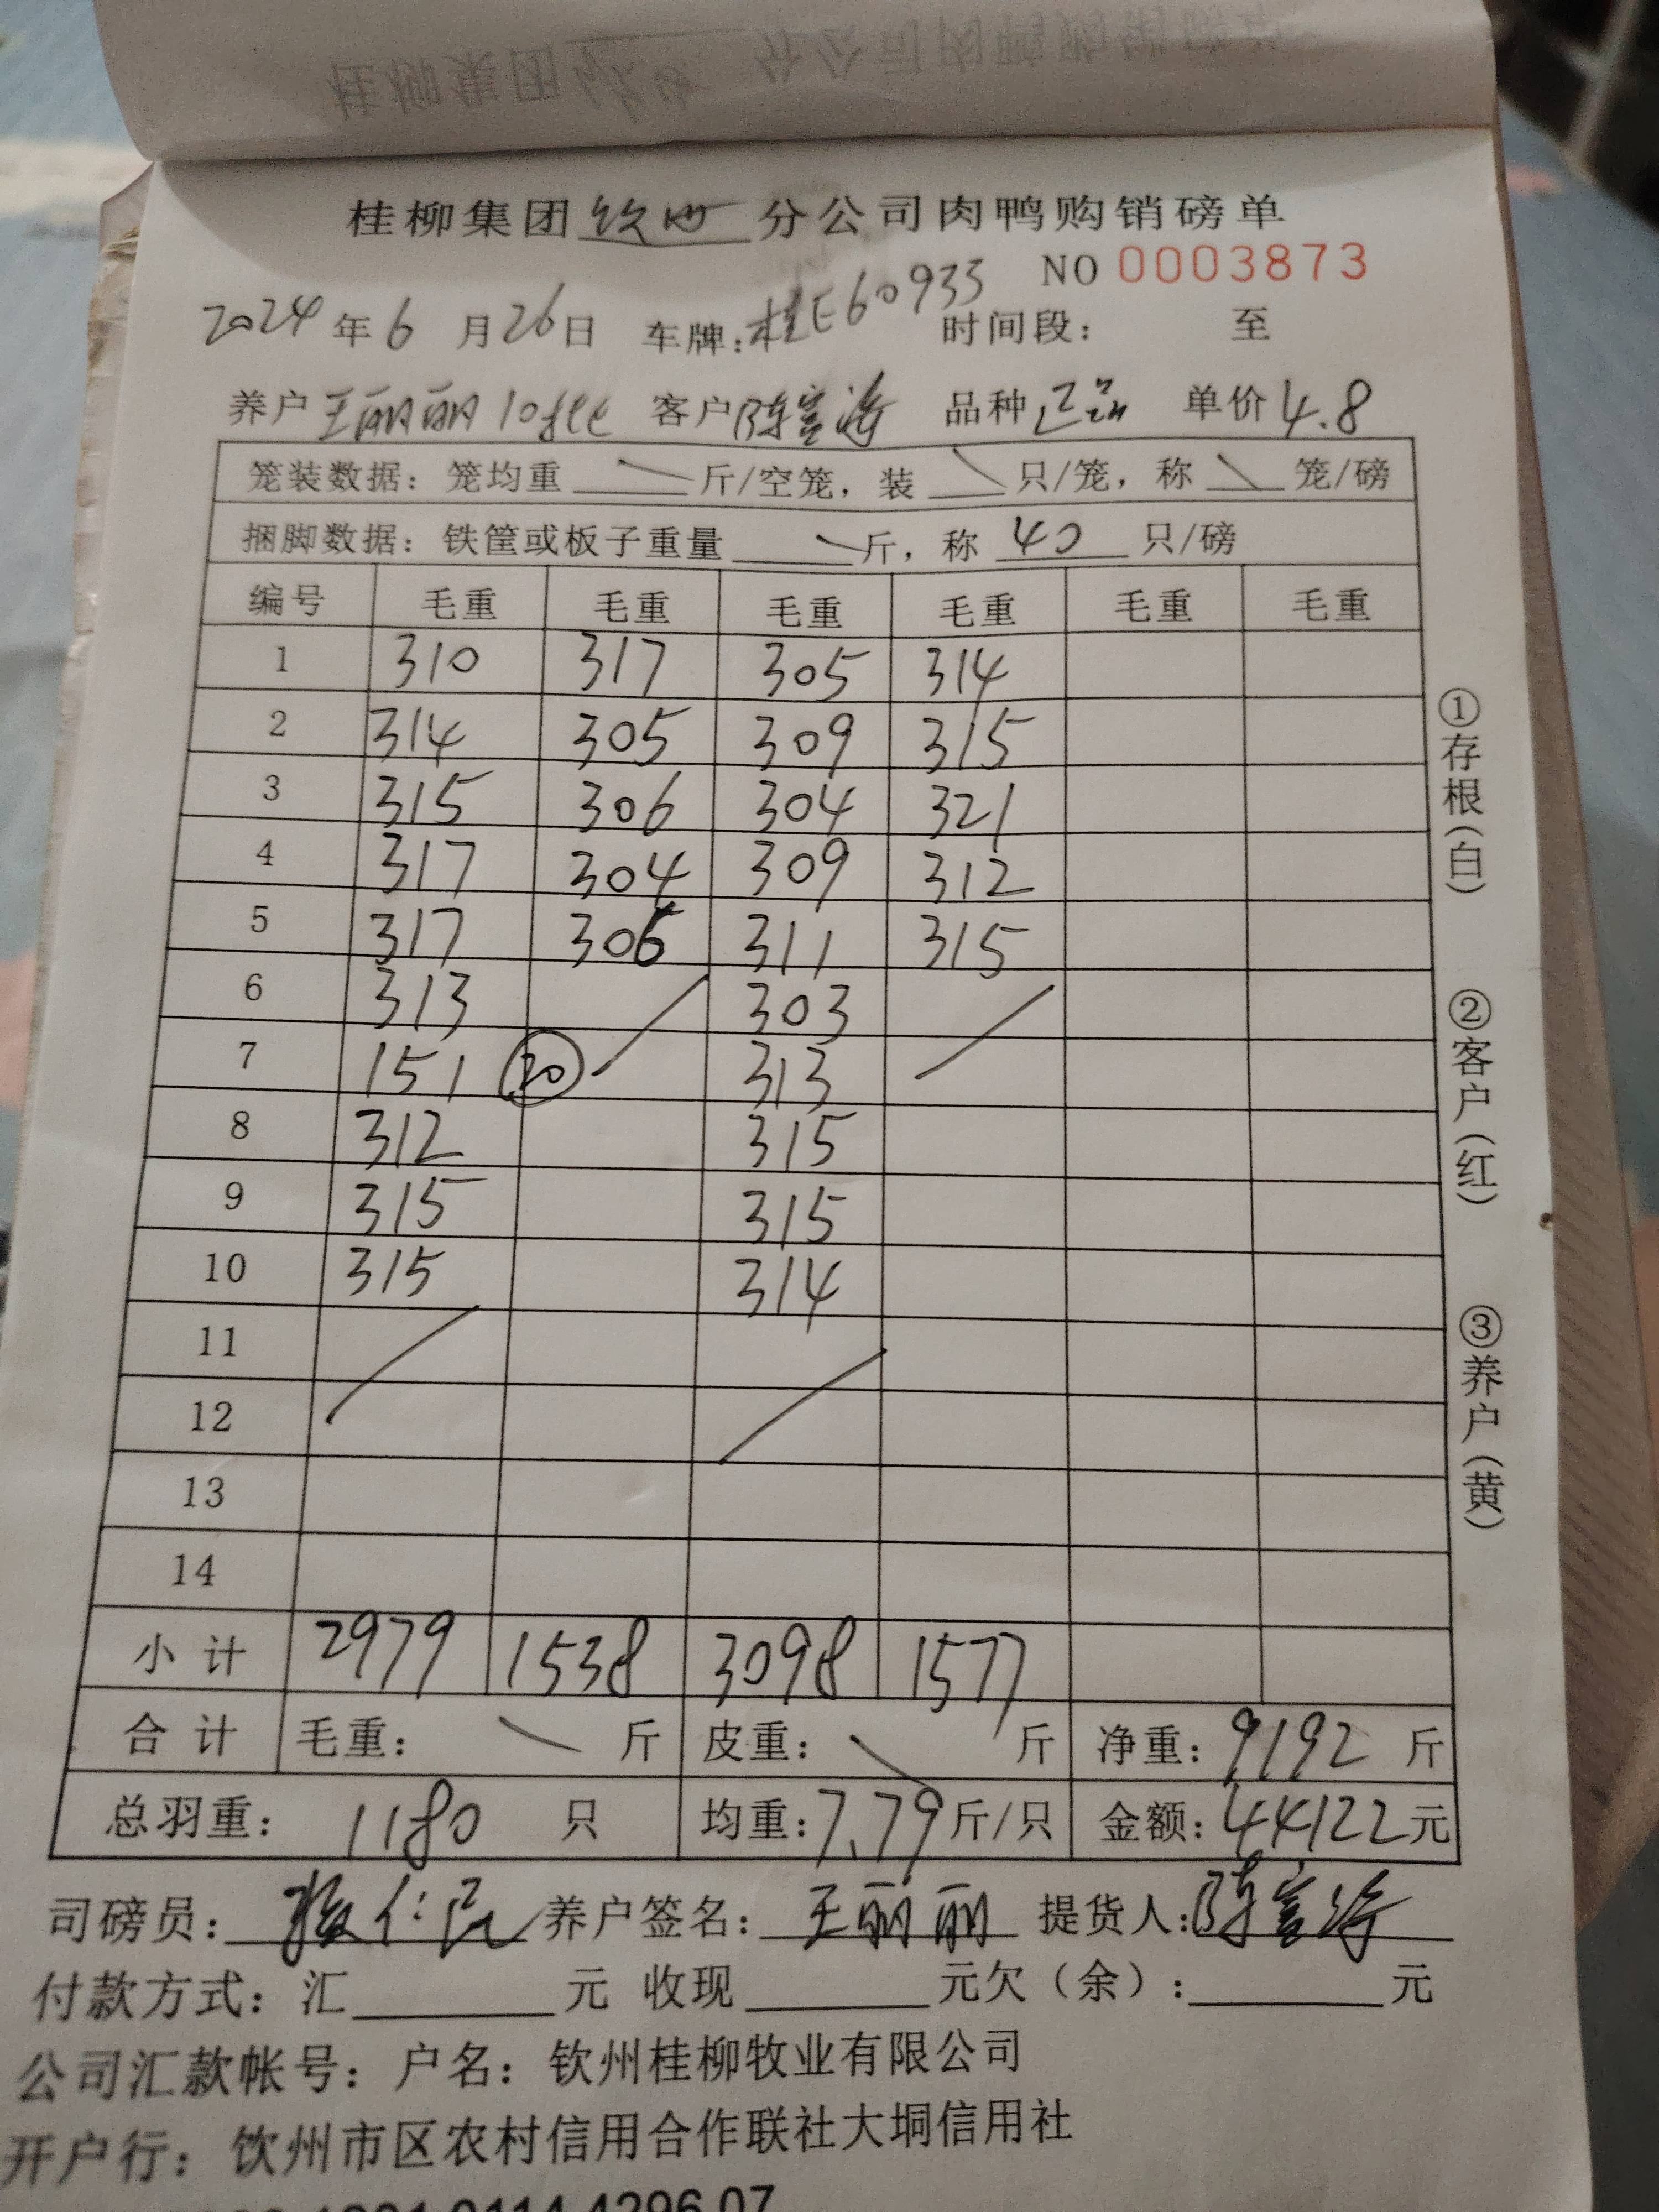 桂柳集团钦州分公司肉鸭购销磅单
NO 0003873
2024年6月26日 车牌:桂E60933 时间段: 至
养户王丽丽 客户陈富海 品种正品 单价4.8
笼装数据:笼均重 斤/空笼,装 只/笼,称 笼/磅
捆脚数据:铁筐或板子重量 斤,称 40 只/磅
编号 毛重 毛重 毛重 毛重 毛重 毛重
1 310 317 305 314
2 314 305 309 315
3 315 306 304 321
4 317 304 309 312
5 317 306 311 315
6 313 303
7 151 20 313
8 312 315
9 315 315
10 315 314
11
12
13
14
小计 2979 1538 3098 1577
合计 毛重: 斤 皮重: 斤 净重:9192斤
总羽重:1180只 均重:7.79斤/只 金额:44122元
司磅员: 养户签名:王丽丽 提货人:陈富海
付款方式:汇 元 收现 元欠(余): 元
公司汇款帐号:户名:钦州桂柳牧业有限公司
开户行:钦州市区农村信用合作联社大垌信用社
①存根(白)
②客户(红)
③养户(黄)